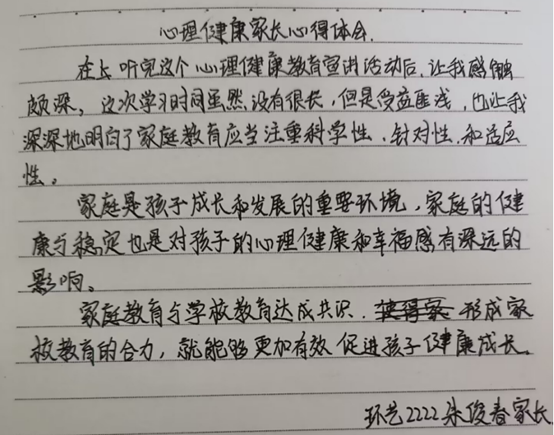 心理健康家长心得体会.
在上听完这个心理健康教育宣讲活动后,让我感触
颇深。这次学习时间虽然没有很长,但是受益匪浅,也让我
深深地明白了家庭教育应当注重科学性、针对性、和适应
性。
家庭是孩子成长和发展的重要环境,家庭的健
康与稳定也是对孩子的心理健康和幸福感有深远的
影响。
家庭教育与学校教育达成共识.使得家 形成家
校教育的合力,就能够更加有效促进孩子健康成长。
环艺2222朱俊春家长